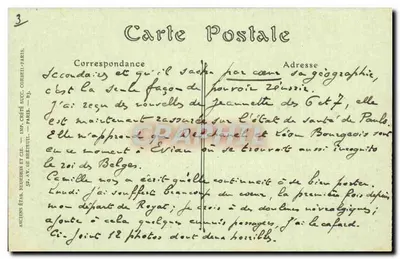 3
Carte Postale
Correspondance
Adresse
secondaires et qu'il sache par cœur sa géographie,
c'est la seule façon de pouvoir réussir.
J'ai reçu des nouvelles de Jeannette des 6 et 7, elle
est maintenant rassurée sur l'état de santé de Paulo.
Elle m'apprend Deschanel et Léon Bourgeois sont
en ce moment à Evian où se trouvait aussi incognito
le roi des Belges.
Camille m'a écrit qu'elle continuait à se bien porter.
Lundi j'ai souffert beaucoup du cœur, la première fois depuis
mon départ de Royat; je crois à de douleurs névralgiques;
ajoute à cela quelques ennuis passagers, j'ai le cafard.
Ci-Joint 12 photos dont deux horribles.
ANCIENS ÉTAB. NEURDEIN ET CIE. - IMP. CRÉTÉ SUCC. CORBEIL-PARIS.